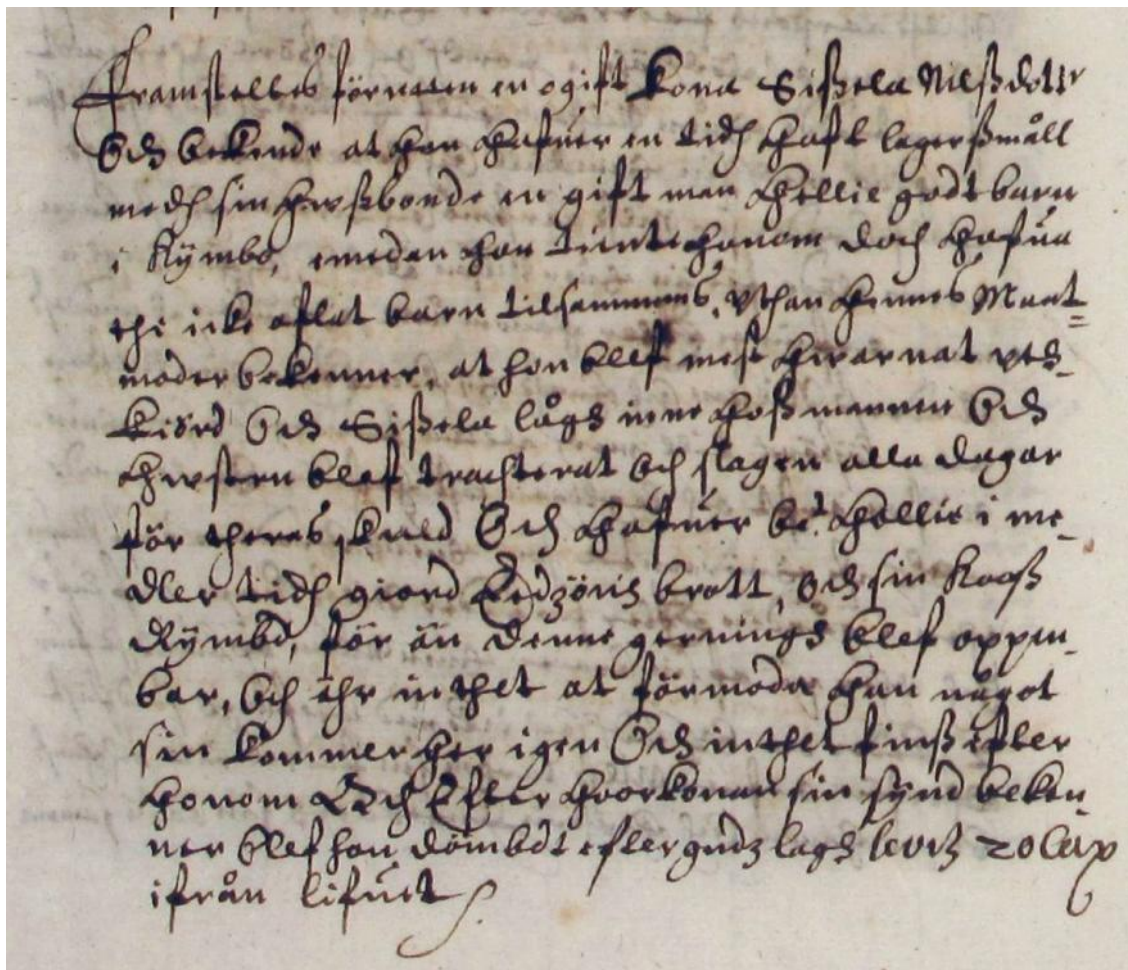 Framsteltes förretten en ogift kona Sißela Nilßdotter
Och bekende at hon hafuer en tidh haft lägerßmåll
medh sin hwßbonde en gift man Hellie godt barn
i Kÿmbo, emedan hon tiente honom doch hafua
the icke aflat barn tilsammans, vthan hennes Maat=
moder bekenner, at hon blef mest hwar nat vth=
kiörd Och Sißela lågh inne hoß mannen Och
hwstrun blef trachterat och slagen alla dagar
för theras skuld Och hafuer be:te Hellie i me=
dler tidh giord Edzöris brott, och sin koos
Rÿmbd, för än denne gerningh blef oppen=
bar, och ähr inthet at förmoda han något
sin kommer her igen Och inthet finß efter
honom Och Efter hoorkonan sin sÿnd beken=
ner blef hon dömbdt efter gudz lagh levit: 20 Cap
ifrån lifuet